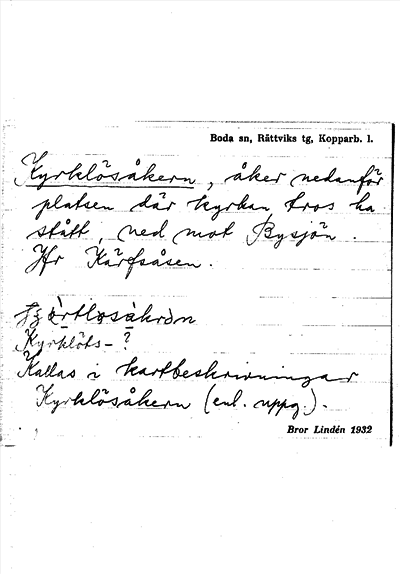 Boda sn, Rättviks tg, Kopparb. l.
Kyrklösåkern, åker nedanför
platsen där kyrkan tros ha
stått, ned mot Bysjön.
Jfr Kärfsåsen.
Kyrklöts-?
Kallas i kartbeskrivningar
Kyrklösåkern (enl. uppg.).
Bror Lindén 1932